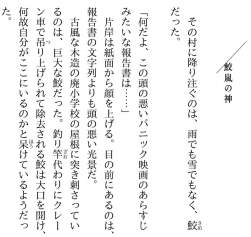 鮫嵐の神
その村に降り注ぐのは、雨でも雪でもなく、鮫
だった。
「何だよ、この頭の悪いパニック映画のあらすじ
みたいな報告書は……」
片岸は紙面から顔を上げる。目の前にあるのは、
報告書の文字列よりも頭の悪い光景だ。
古風な木造の廃小学校の屋根に突き刺さってい
るのは、巨大な鮫だった。釣り竿代わりにクレー
ン車で吊り上げられて除去される鮫は大口を開け、
何故自分がここにいるのかと呆けているようだっ
た。